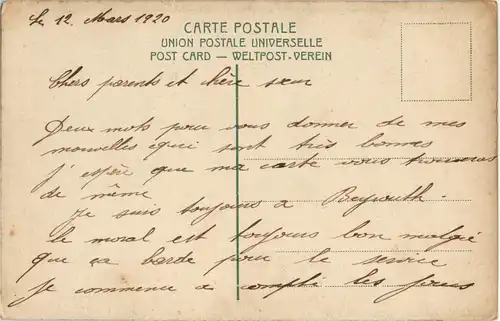 Le 12 Mars 1920
CARTE POSTALE
UNION POSTALE UNIVERSELLE
POST CARD — WELTPOST-VEREIN
Chers parents et chère sœur
Deux mots pour vous donner de mes
nouvelles qui sont très bonnes
j'espère que ma carte vous trouveras
de même
Je suis toujours a Beyrouth
le moral est toujours bon malgré
que ça barde pour le service
je commence a compli les jours